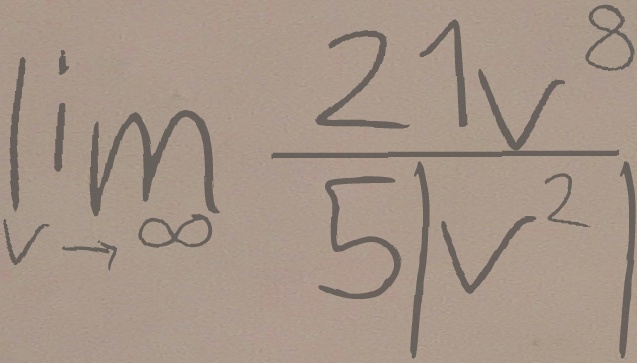 \lim_{v \to \infty} \frac{21v^8}{5|v^2|}